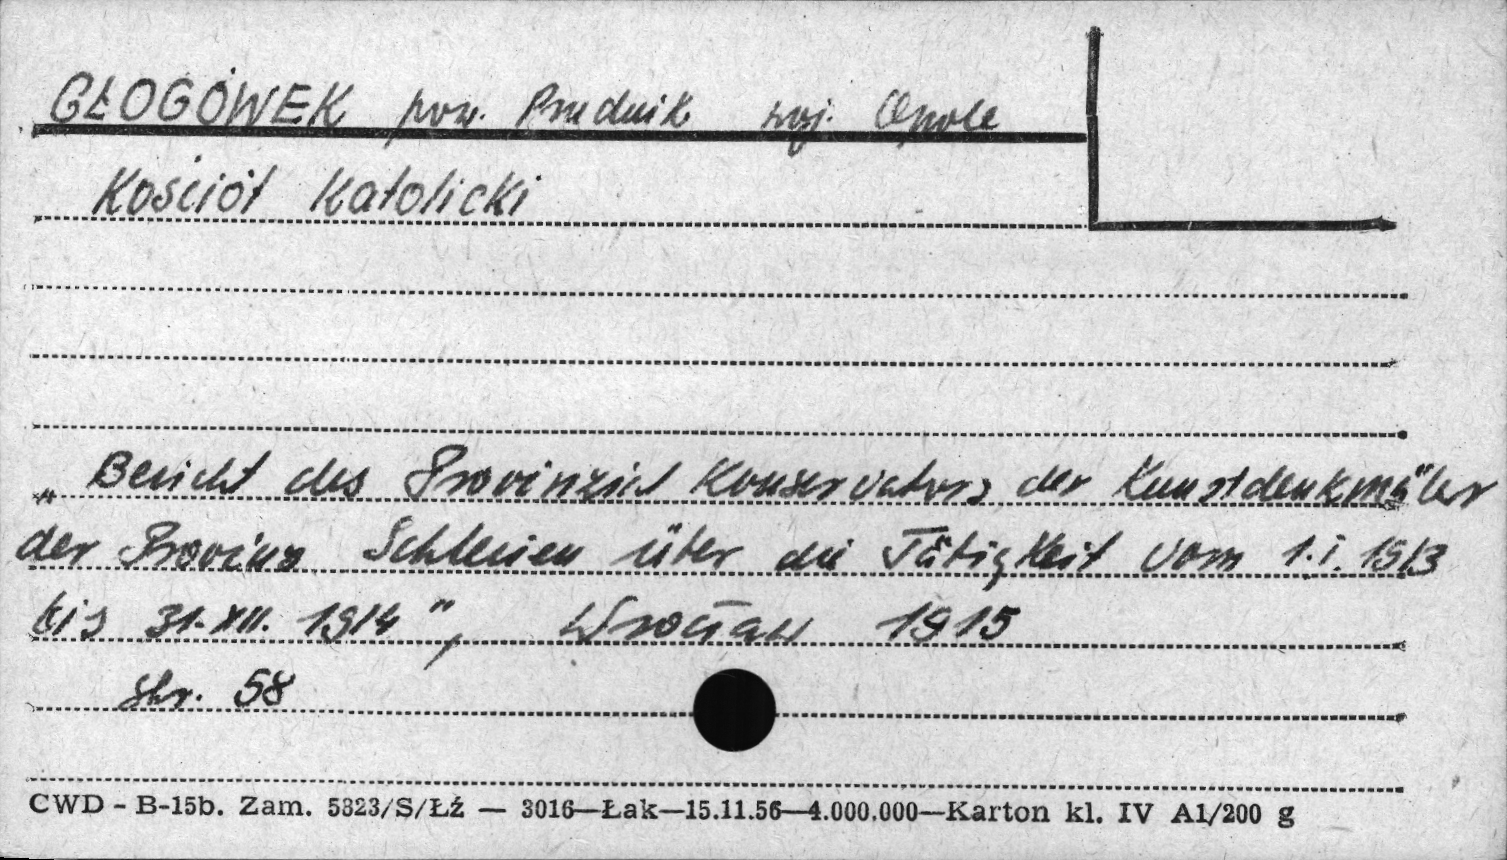 GŁOGÓWEK pow. Prudnik woj. Opole
Kościół Katolicki
„Bericht des Provinzial Konservators der Kunstdenkmäler
der Provinz Schlesien über die Tätigkeit vom 1.I.1913
bis 31.XII.1914", Wrocław 1915
str. 58
CWD - B-15b. Zam. 5323/S/Łź — 3016—Łak—15.11.56—4.000.000—Karton kl. IV A1/200 g